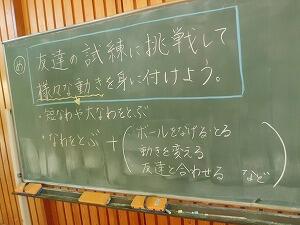 め
友達の試練に挑戦して
様々な動きを身に付けよう。
・短なわや大なわをとぶ
・なわをとぶ + (ボールをなげる・とる
動きを変える
友達と合わせる など)